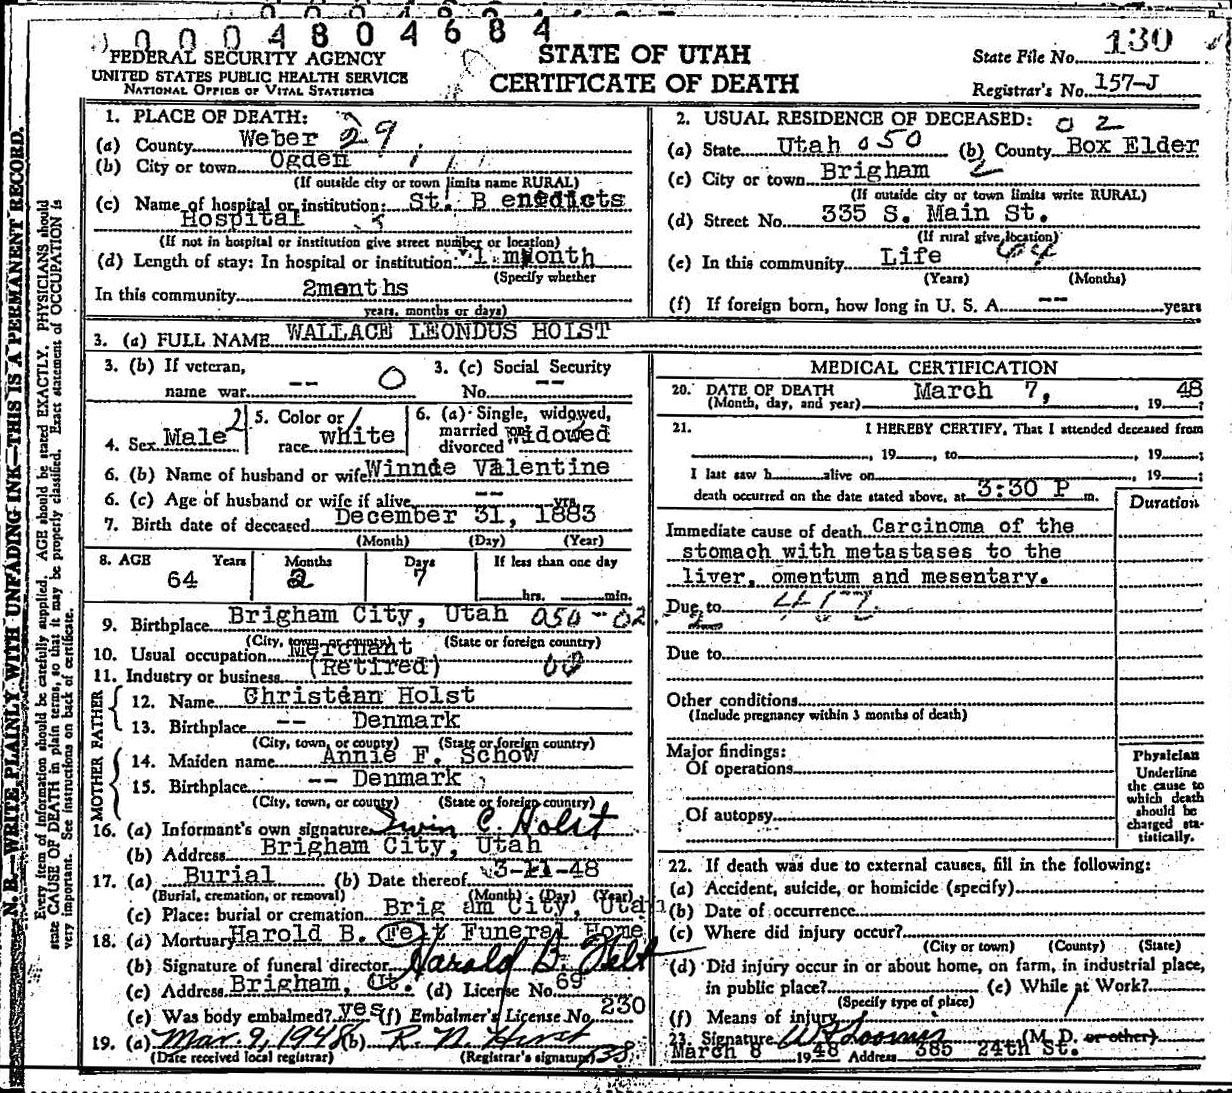 0 0 0 4 8 0 4 6 8 4
FEDERAL SECURITY AGENCY
UNITED STATES PUBLIC HEALTH SERVICE
NATIONAL OFFICE OF VITAL STATISTICS
STATE OF UTAH
CERTIFICATE OF DEATH
State File No. 130
Registrar's No. 157-J
N. B.—WRITE PLAINLY WITH UNFADING INK—THIS IS A PERMANENT RECORD.
Every item of information should be carefully supplied. AGE should be stated EXACTLY. PHYSICIANS should
state CAUSE OF DEATH in plain terms, so that it may be properly classified. Exact statement of OCCUPATION is
very important. See instructions on back of certificate.
1. PLACE OF DEATH:
(a) County Weber 29
(b) City or town Ogden
(If outside city or town limits name RURAL)
(c) Name of hospital or institution: St. B enedicts
Hospital
(If not in hospital or institution give street number or location)
(d) Length of stay: In hospital or institution: 1 month
(Specify whether
In this community 2months
years, months or days)
2. USUAL RESIDENCE OF DECEASED: 02
(a) State Utah 050 (b) County Box Elder
(c) City or town Brigham 2
(If outside city or town limits write RURAL)
(d) Street No. 335 S. Main St.
(If rural give location)
(e) In this community Life 64
(Years) (Months)
(f) If foreign born, how long in U. S. A. -- years
3. (a) FULL NAME WALLACE LEONDUS HOLST
3. (b) If veteran,
name war -- 0
3. (c) Social Security
No. --
4. Sex Male 2
5. Color or
race white
6. (a) Single, widowed,
married or
divorced Widowed
6. (b) Name of husband or wife Winnie Valentine
6. (c) Age of husband or wife if alive -- yrs.
7. Birth date of deceased December 31, 1883
(Month) (Day) (Year)
8. AGE Years Months Days If less than one day
64 2 7 hrs. min.
9. Birthplace Brigham City, Utah 050-02
(City, town, or county) (State or foreign country)
10. Usual occupation Merchant
11. Industry or business (Retired)
FATHER
12. Name Christian Holst
13. Birthplace -- Denmark
(City, town, or county) (State or foreign country)
MOTHER
14. Maiden name Annie F. Schow
15. Birthplace -- Denmark
(City, town, or county) (State or foreign country)
16. (a) Informant's own signature Irvin C. Holst
(b) Address Brigham City, Utah
17. (a) Burial (b) Date thereof 3-11-48
(Burial, cremation, or removal) (Month) (Day) (Year)
(c) Place: burial or cremation Brig am City, Utah
18. (a) Mortuary Harold B. Felt Funeral Home
(b) Signature of funeral director Harold B. Felt
(c) Address Brigham, Ut. (d) License No. 69
(e) Was body embalmed? yes (f) Embalmer's License No. 230
19. (a) Mar. 9, 1948 (b) R. N. Hirst
(Date received local registrar) (Registrar's signature) 38
MEDICAL CERTIFICATION
20. DATE OF DEATH March 7, 1948
(Month, day, and year)
21. I HEREBY CERTIFY, That I attended deceased from
, 19 , to , 19 ;
I last saw h alive on , 19 ;
death occurred on the date stated above, at 3:30 P m.
Duration
Immediate cause of death Carcinoma of the
stomach with metastases to the
liver, omentum and mesentary.
Due to
Due to
Other conditions
(Include pregnancy within 3 months of death)
Major findings:
Of operations
Of autopsy
Physician
Underline
the cause to
which death
should be
charged sta-
tistically.
22. If death was due to external causes, fill in the following:
(a) Accident, suicide, or homicide (specify)
(b) Date of occurrence
(c) Where did injury occur?
(City or town) (County) (State)
(d) Did injury occur in or about home, on farm, in industrial place,
in public place? (e) While at Work?
(Specify type of place)
(f) Means of injury
23. Signature (M. D. or other)
March 8 1948 Address 385 24th St.